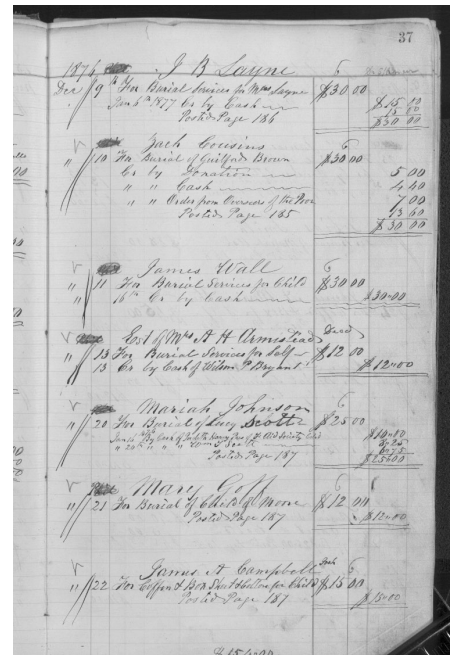 37
1876 J B Layne
Dec 9th For Burial Services for Mrs Layne $30 00
Jan 5th 1877 Cr by Cash $15 00
15 00
Posted Page 186 $30 00
Zach Cousins
" 10 For Burial of Guilford Brown $30 00
Cr by Donation 5 00
" " Cash 4 40
" " Order from Overseers of the Poor 7 00
13 60
Posted Page 185 $30 00
James Wall
" 11 For Burial Services for Child $30 00
16th Cr by Cash $30.00
Est of Mrs A H Armistead Decd
" 13 For Burial Services for Self $12 00
13 Cr by Cash of Wilson P Bryant $12.00
Mariah Johnson
" 20 For Burial of Lucy Scott $25 00
$10.00
8.25
6.75
Posted Page 187 $25.00
Mary Goff
" 21 For Burial of Child of Moore $12 00
Posted Page 187 $12.00
James A Campbell
" 22 For Coffin & Box for Child $15 00
Posted Page 187 $15.00